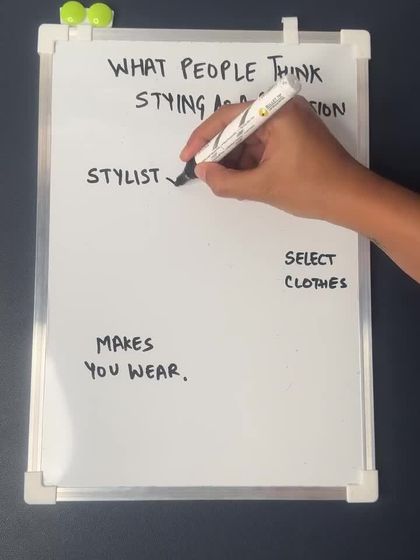 WHAT PEOPLE THINK
STYING AS A
STYLIST
SELECT
CLOTHES
MAKES
YOU WEAR.